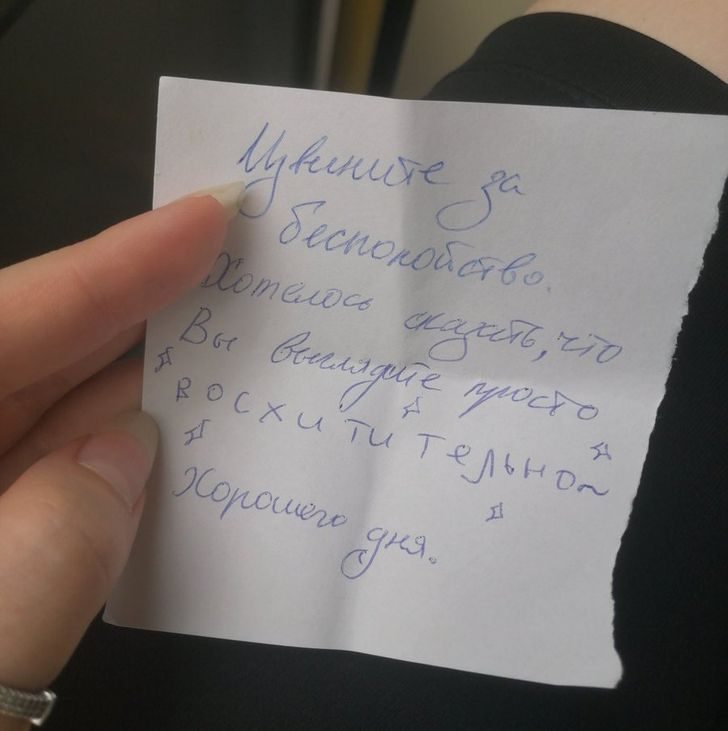 Извините за
беспокойство.
Хотелось сказать, что
Вы выглядите просто
восхитительно~
Хорошего дня.